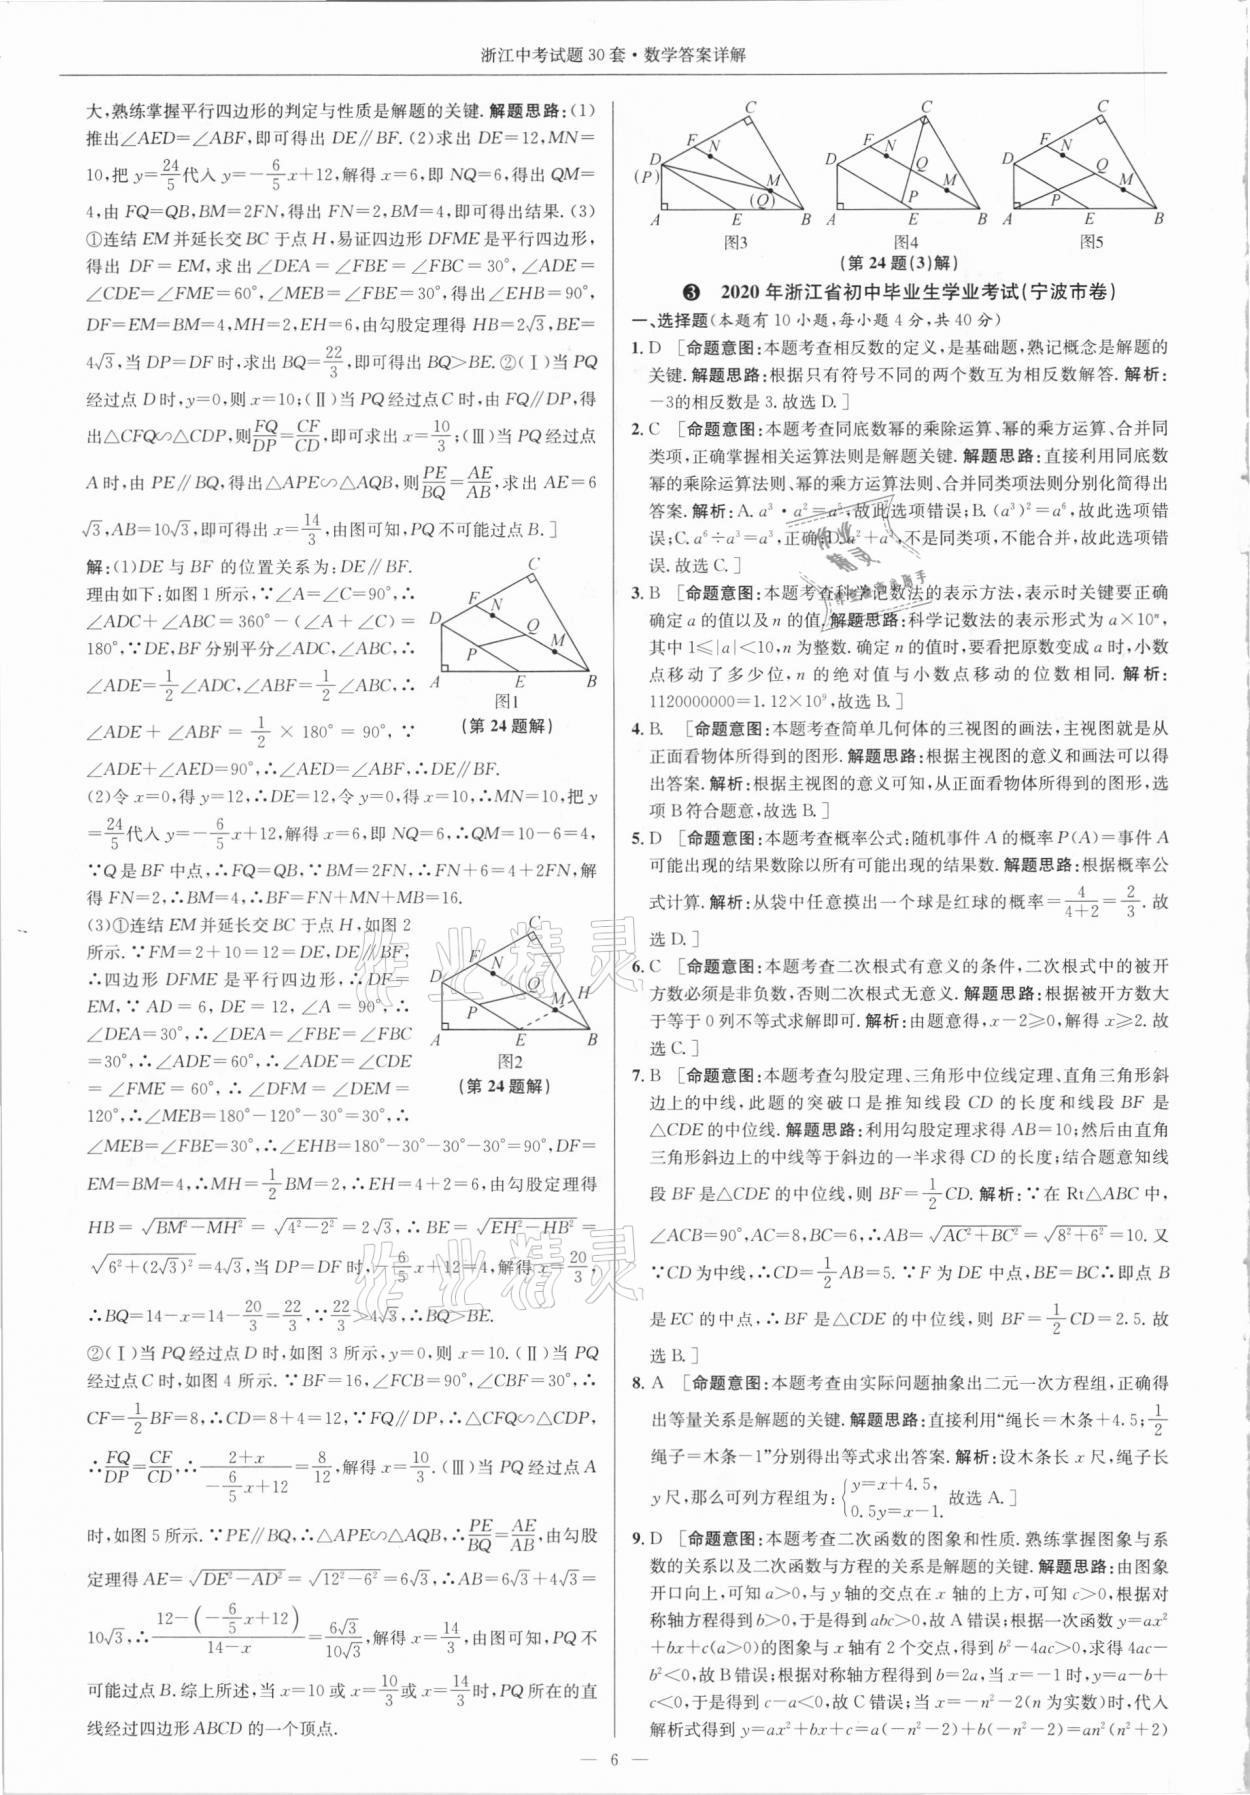 浙江中考试题30套·数学答案详解
大,熟练掌握平行四边形的判定与性质是解题的关键.解题思路:(1)
推出∠AED=∠ABF,即可得出DE∥BF.(2)求出DE=12,MN=
10,把y=24/5代入y=-6/5x+12,解得x=6,即NQ=6,得出QM=
4,由FQ=QB,BM=2FN,得出FN=2,BM=4,即可得出结果.(3)
①连结EM并延长交BC于点H,易证四边形DFME是平行四边形,
得出DF=EM,求出∠DEA=∠FBE=∠FBC=30°,∠ADE=
∠CDE=∠FME=60°,∠MEB=∠FBE=30°,得出∠EHB=90°,
DF=EM=BM=4,MH=2,EH=6,由勾股定理得HB=2√3,BE=
4√3,当DP=DF时,求出BQ=22/3,即可得出BQ>BE.②(Ⅰ)当PQ
经过点D时,y=0,则x=10;(Ⅱ)当PQ经过点C时,由FQ∥DP,得
出△CFQ∽△CDP,则FQ/DP=CF/CD,即可求出x=10/3;(Ⅲ)当PQ经过点
A时,由PE∥BQ,得出△APE∽△AQB,则PE/BQ=AE/AB,求出AE=6
√3,AB=10√3,即可得出x=14/3,由图可知,PQ不可能过点B.]
解:(1)DE与BF的位置关系为:DE∥BF.
理由如下:如图1所示,∵∠A=∠C=90°,∴
∠ADC+∠ABC=360°-(∠A+∠C)=
180°,∵DE,BF分别平分∠ADC,∠ABC,∴
∠ADE=1/2∠ADC,∠ABF=1/2∠ABC,∴
∠ADE+∠ABF=1/2×180°=90°,∵
∠ADE+∠AED=90°,∴∠AED=∠ABF,∴DE∥BF.
C
F
N
D
Q
M
P
A
E
B
图1
(第24题解)
(2)令x=0,得y=12,∴DE=12,令y=0,得x=10,∴MN=10,把y
=24/5代入y=-6/5x+12,解得x=6,即NQ=6,∴QM=10-6=4,
∵Q是BF中点,∴FQ=QB,∵BM=2FN,∴FN+6=4+2FN,解
得FN=2,∴BM=4,∴BF=FN+MN+MB=16.
(3)①连结EM并延长交BC于点H,如图2
所示.∵FM=2+10=12=DE,DE∥BF,
∴四边形DFME是平行四边形,∴DF=
EM,∵AD=6,DE=12,∠A=90°,∴
∠DEA=30°,∴∠DEA=∠FBE=∠FBC
=30°,∴∠ADE=60°,∴∠ADE=∠CDE
=∠FME=60°,∴∠DFM=∠DEM=
120°,∴∠MEB=180°-120°-30°=30°,∴
C
F
N
D
Q
M
H
P
A
E
B
图2
(第24题解)
∠MEB=∠FBE=30°,∴∠EHB=180°-30°-30°-30°=90°,DF=
EM=BM=4,∴MH=1/2BM=2,∴EH=4+2=6,由勾股定理得
HB=√(BM²-MH²)=√(4²-2²)=2√3,∴BE=√(EH²-HB²)=
√(6²+(2√3)²)=4√3,当DP=DF时,-6/5x+12=4,解得x=20/3,
∴BQ=14-x=14-20/3=22/3,∵22/3>4√3,∴BQ>BE.
②(Ⅰ)当PQ经过点D时,如图3所示,y=0,则x=10.(Ⅱ)当PQ
经过点C时,如图4所示.∵BF=16,∠FCB=90°,∠CBF=30°,∴
CF=1/2BF=8,∴CD=8+4=12,∵FQ∥DP,∴△CFQ∽△CDP,
∴FQ/DP=CF/CD,∴(2+x)/(-6/5x+12)=8/12,解得x=10/3.(Ⅲ)当PQ经过点A
时,如图5所示.∵PE∥BQ,∴△APE∽△AQB,∴PE/BQ=AE/AB,由勾股
定理得AE=√(DE²-AD²)=√(12²-6²)=6√3,∴AB=6√3+4√3=
10√3,∴(12-(-6/5x+12))/(14-x)=6√3/10√3,解得x=14/3,由图可知,PQ不
可能过点B.综上所述,当x=10或x=10/3或x=14/3时,PQ所在的直
线经过四边形ABCD的一个顶点.
C
F
N
D
(P)
M
(Q)
A
E
B
图3
C
F
N
D
Q
M
P
A
E
B
图4
C
F
N
D
Q
M
P
A
E
B
图5
(第24题(3)解)
❸ 2020年浙江省初中毕业生学业考试(宁波市卷)
一、选择题(本题有10小题,每小题4分,共40分)
1.D [命题意图:本题考查相反数的定义,是基础题,熟记概念是解题的
关键.解题思路:根据只有符号不同的两个数互为相反数解答.解析:
-3的相反数是3.故选D.]
2.C [命题意图:本题考查同底数幂的乘除运算、幂的乘方运算、合并同
类项,正确掌握相关运算法则是解题关键.解题思路:直接利用同底数
幂的乘除运算法则、幂的乘方运算法则、合并同类项法则分别化简得出
答案.解析:A.a³·a²=a⁵,故此选项错误;B.(a³)²=a⁶,故此选项错
误;C.a⁶÷a³=a³,正确;D.a²+a³,不是同类项,不能合并,故此选项错
误.故选C.]
3.B [命题意图:本题考查科学记数法的表示方法,表示时关键要正确
确定a的值以及n的值.解题思路:科学记数法的表示形式为a×10ⁿ,
其中1≤|a|<10,n为整数.确定n的值时,要看把原数变成a时,小数
点移动了多少位,n的绝对值与小数点移动的位数相同.解析:
1120000000=1.12×10⁹,故选B.]
4.B. [命题意图:本题考查简单几何体的三视图的画法,主视图就是从
正面看物体所得到的图形.解题思路:根据主视图的意义和画法可以得
出答案.解析:根据主视图的意义可知,从正面看物体所得到的图形,选
项B符合题意,故选B.]
5.D [命题意图:本题考查概率公式:随机事件A的概率P(A)=事件A
可能出现的结果数除以所有可能出现的结果数.解题思路:根据概率公
式计算.解析:从袋中任意摸出一个球是红球的概率=4/(4+2)=2/3.故
选D.]
6.C [命题意图:本题考查二次根式有意义的条件,二次根式中的被开
方数必须是非负数,否则二次根式无意义.解题思路:根据被开方数大
于等于0列不等式求解即可.解析:由题意得,x-2≥0,解得x≥2.故
选C.]
7.B [命题意图:本题考查勾股定理、三角形中位线定理、直角三角形斜
边上的中线,此题的突破口是推知线段CD的长度和线段BF是
△CDE的中位线.解题思路:利用勾股定理求得AB=10;然后由直角
三角形斜边上的中线等于斜边的一半求得CD的长度;结合题意知线
段BF是△CDE的中位线,则BF=1/2CD.解析:∵在Rt△ABC中,
∠ACB=90°,AC=8,BC=6,∴AB=√(AC²+BC²)=√(8²+6²)=10.又
∵CD为中线,∴CD=1/2AB=5.∵F为DE中点,BE=BC∴即点B
是EC的中点,∴BF是△CDE的中位线,则BF=1/2CD=2.5.故
选B.]
8.A [命题意图:本题考查由实际问题抽象出二元一次方程组,正确得
出等量关系是解题的关键.解题思路:直接利用“绳长=木条+4.5;1/2
绳子=木条-1”分别得出等式求出答案.解析:设木条长x尺,绳子长
y尺,那么可列方程组为:{y=x+4.5, 0.5y=x-1. 故选A.]
9.D [命题意图:本题考查二次函数的图象和性质.熟练掌握图象与系
数的关系以及二次函数与方程的关系是解题的关键.解题思路:由图象
开口向上,可知a>0,与y轴的交点在x轴的上方,可知c>0,根据对
称轴方程得到b>0,于是得到abc>0,故A错误;根据一次函数y=ax²
+bx+c(a>0)的图象与x轴有2个交点,得到b²-4ac>0,求得4ac-
b²<0,故B错误;根据对称轴方程得到b=2a,当x=-1时,y=a-b+
c<0,于是得到c-a<0,故C错误;当x=-n²-2(n为实数)时,代入
解析式得到y=ax²+bx+c=a(-n²-2)+b(-n²-2)=an²(n²+2)
— 6 —
作业精灵
作业精灵
作业精灵